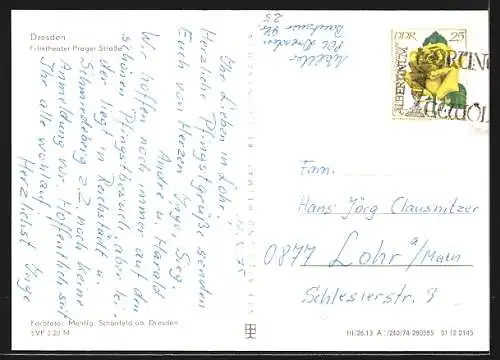 Dresden
Filmtheater Prager Straße
Ihr Lieben in Lohr
Herzliche Pfingstgrüße senden
Euch von Herzen Inge, Sieg.
Andre u. Harald
Wir hoffen noch immer auf den
schönen Pfingstbesuch, aber lei-
der liegt in Reichstädt u.
Schmiedeberg z.Z. noch keine
Anmeldung vor. Hoffentlich seit
Ihr alle wohlauf
Herzlichst Inge
Farbfoto: Mehlig, Schönfeld üb. Dresden
Dresden
25
DDR 25
ALBERTINUM
Fam.
Hans Jörg Clausnitzer
0877 Lohr a/Main
Schlesierstr. 9
III/26.13 A 1/240/74-280383 01 12 0145